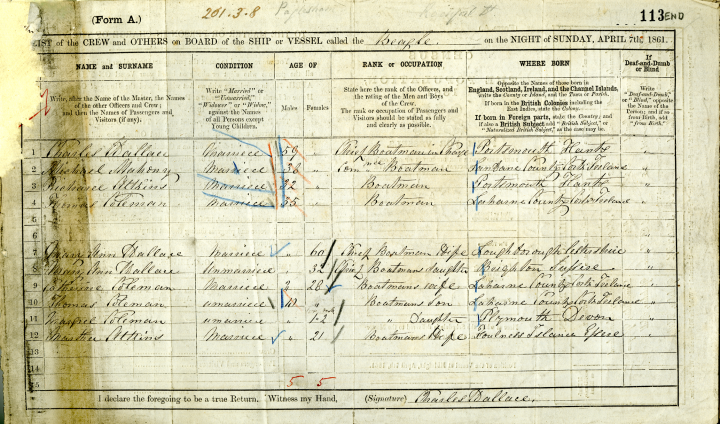 (Form A.)
201.3.8
113 END
LIST of the CREW and OTHERS on BOARD of the SHIP or VESSEL called the Beagle. on the NIGHT of SUNDAY, APRIL 7TH 1861.
NAME and SURNAME CONDITION AGE OF RANK or OCCUPATION WHERE BORN If Deaf-and-Dumb or Blind
Write, after the Name of the Master, the Names of the other Officers and Crew; and then the Names of Passengers and Visitors (if any).
Write "Married" or "Unmarried," "Widower" or "Widow," against the Names of all Persons except Young Children.
Males Females
State here the rank of the Officers, and the rating of the Men and Boys of the Crew. The rank or occupation of Passengers and Visitors should be stated as fully and clearly as possible.
Opposite the Names of those born in England, Scotland, Ireland, and the Channel Islands, write the County or Island, and the Town or Parish. If born in the British Colonies including the East Indies, state the Colony. If born in Foreign parts, state the Country; and if also a British Subject add "British Subject," or "Naturalized British Subject," as the case may be.
Write "Deaf-and-Dumb," or "Blind," opposite the Name of the Person; and if so from birth, add "from Birth."
1 Charles Wallace Married 59 " Chief Boatman in Charge Portsmouth Hants "
2 Mahony Married 36 " Boatman County Cork Ireland "
3 Richard Atkins Married 32 " Boatman Portsmouth Hants "
4 Thomas Coleman Married 35 " Boatman County Cork Ireland "
5
6
7 Ann Wallace Married " 60 Chief Boatman Wife Loughborough "
8 Mary Ann Wallace Unmarried " 32 Chief Boatmans Daughter Sussex "
9 Catherine Coleman Married 28 Boatmans Wife County Cork Ireland "
10 Thomas Coleman unmarried 10 " Boatmans Son County Cork Ireland "
11 Coleman unmarried " Daughter Plymouth Devon "
12 Martha Atkins Married " 21 Boatmans Wife Foulness Island Essex "
13
14
15
5 5
I declare the foregoing to be a true Return. Witness my Hand, (Signature) Charles Wallace.